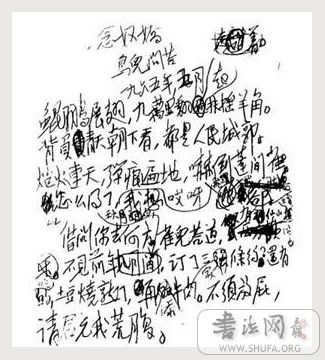 念奴娇
鸟儿问答
一九六五年五月
鲲鹏展翅,九万里 扶摇羊角。
背负青天朝下看,都是人民城郭。
炮火连天,弹痕遍地,吓倒蓬间雀
怎么得了, 哎呀
借问你去何方,雀儿答道,
不见前年 ,订了三家条约 还有
土豆烧熟了,再加牛肉。不须放屁,
请君充我荒腹。
书法网
WWW.SHUFA.ORG